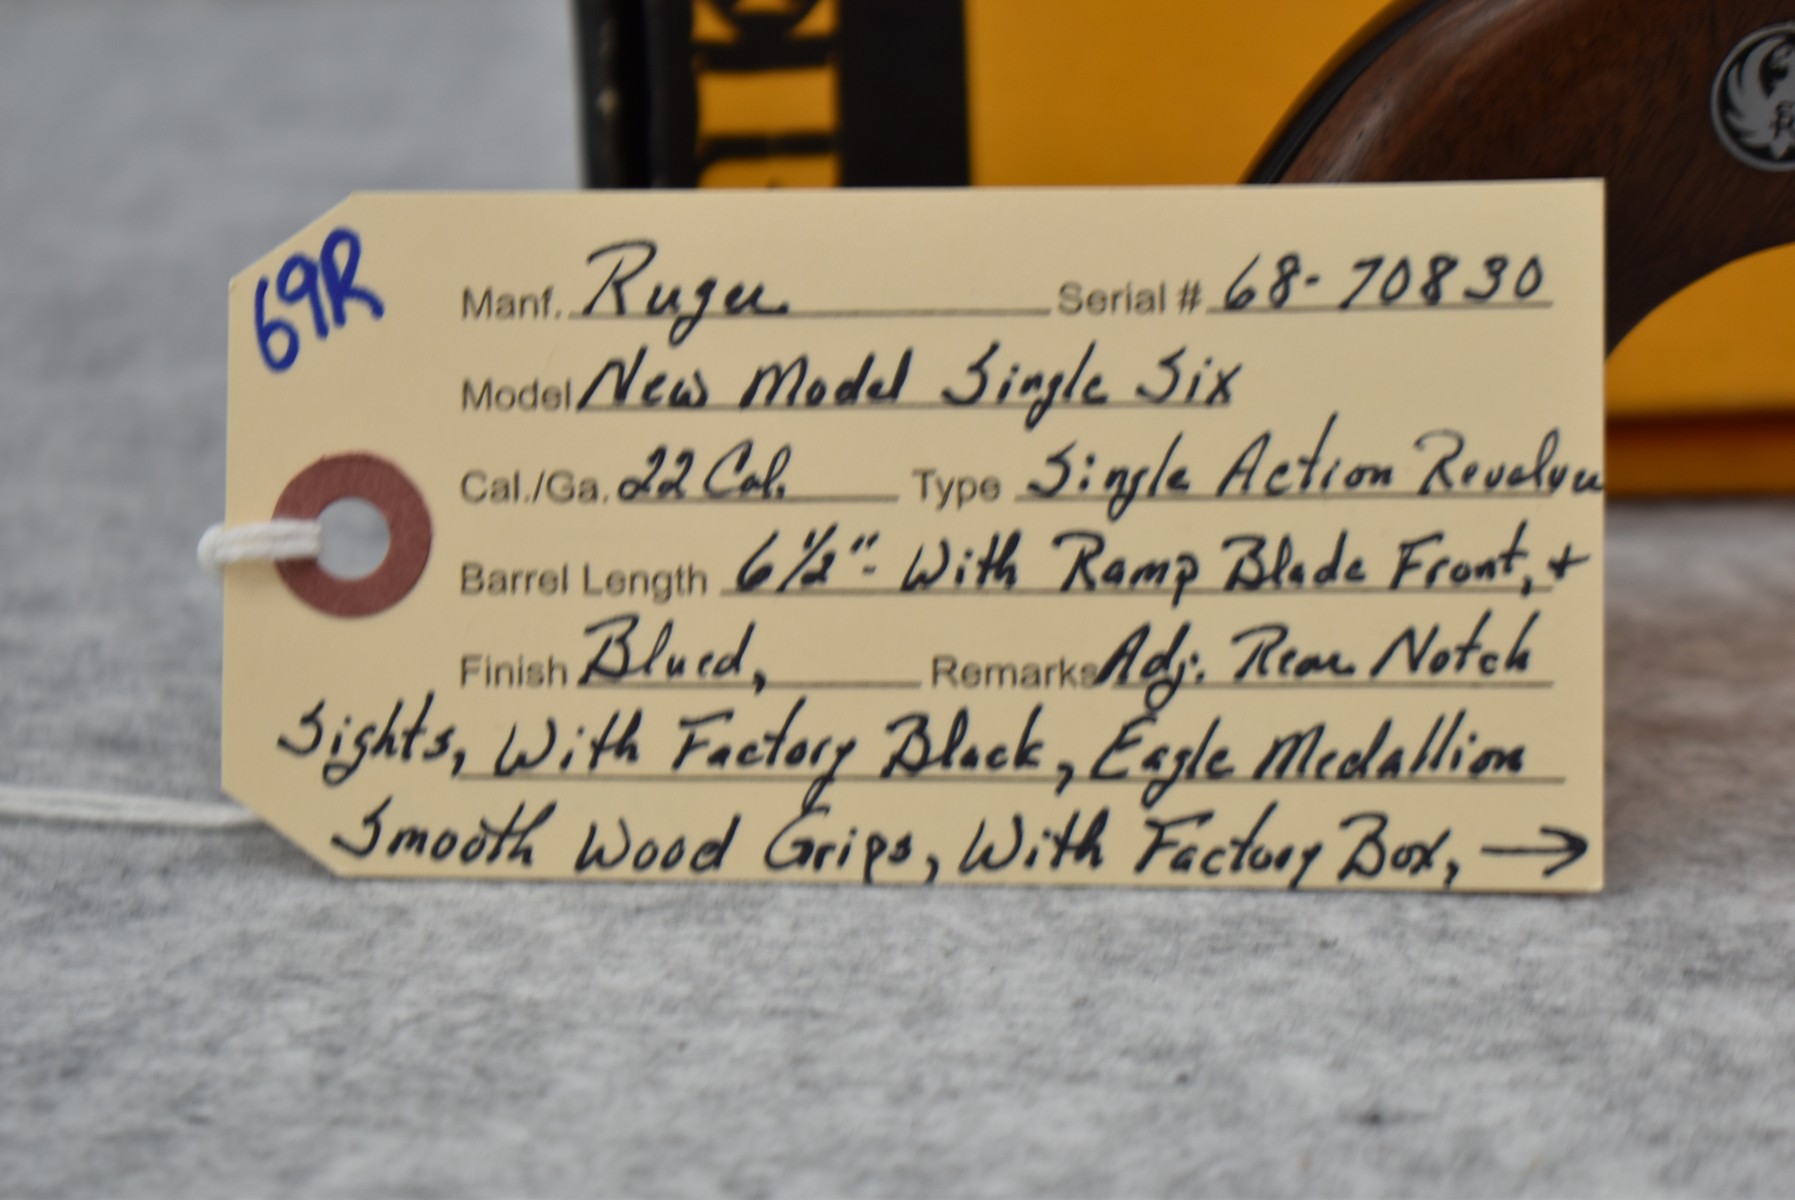 69R
Manf. Ruger Serial # 68-70830
Model New Model Single Six
Cal./Ga. 22 Cal. Type Single Action Revolver
Barrel Length 6 1/2" - With Ramp Blade Front, +
Finish Blued, Remarks Adj. Rear Notch
Sights, With Factory Black, Eagle Medallion
Smooth Wood Grips, With Factory Box, →